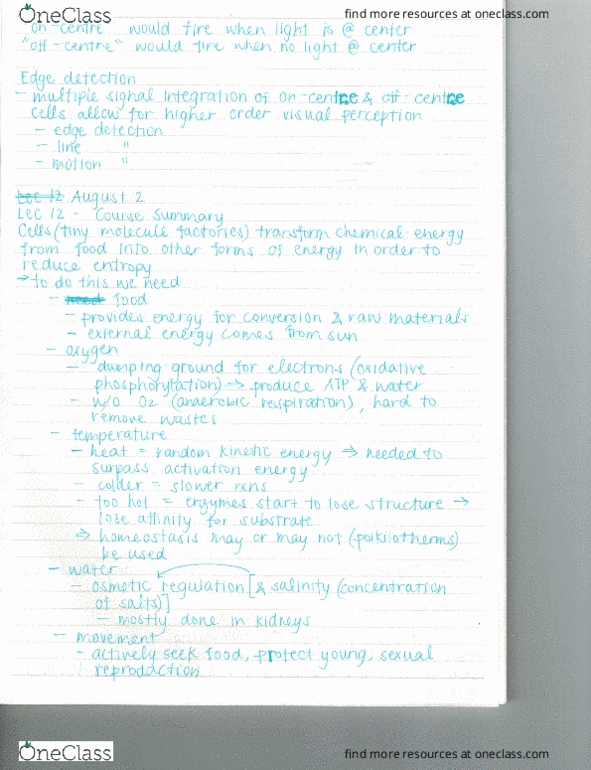 OneClass
find more resources at oneclass.com
"on-centre" would fire when light is @ center
"off-centre" would fire when no light @ center
Edge detection
- multiple signal integration of on-centre & off-centre
cells allow for higher order visual perception
- edge detection
- line "
- motion "
Lec 12 August 2
LEC 12 - Course Summary
Cells (tiny molecule factories) transform chemical energy
from food into other forms of energy in order to
reduce entropy
→ to do this we need
- need food
- provides energy for conversion & raw materials
- external energy comes from sun
- oxygen
- dumping ground for electrons (oxidative
phosphorylation) → produce ATP & water
- w/o O2 (anaerobic respiration), hard to
remove wastes
- temperature
- heat = random kinetic energy ⇒ needed to
surpass activation energy
- colder = slower rxns
- too hot = enzymes start to lose structure →
lose affinity for substrate
⇒ homeostasis may or may not (poikilotherms)
be used
- water
- osmotic regulation [& salinity (concentration
of salts)]
- mostly done in kidneys
- movement
- actively seek food, protect young, sexual
reproduction
OneClass
find more resources at oneclass.com